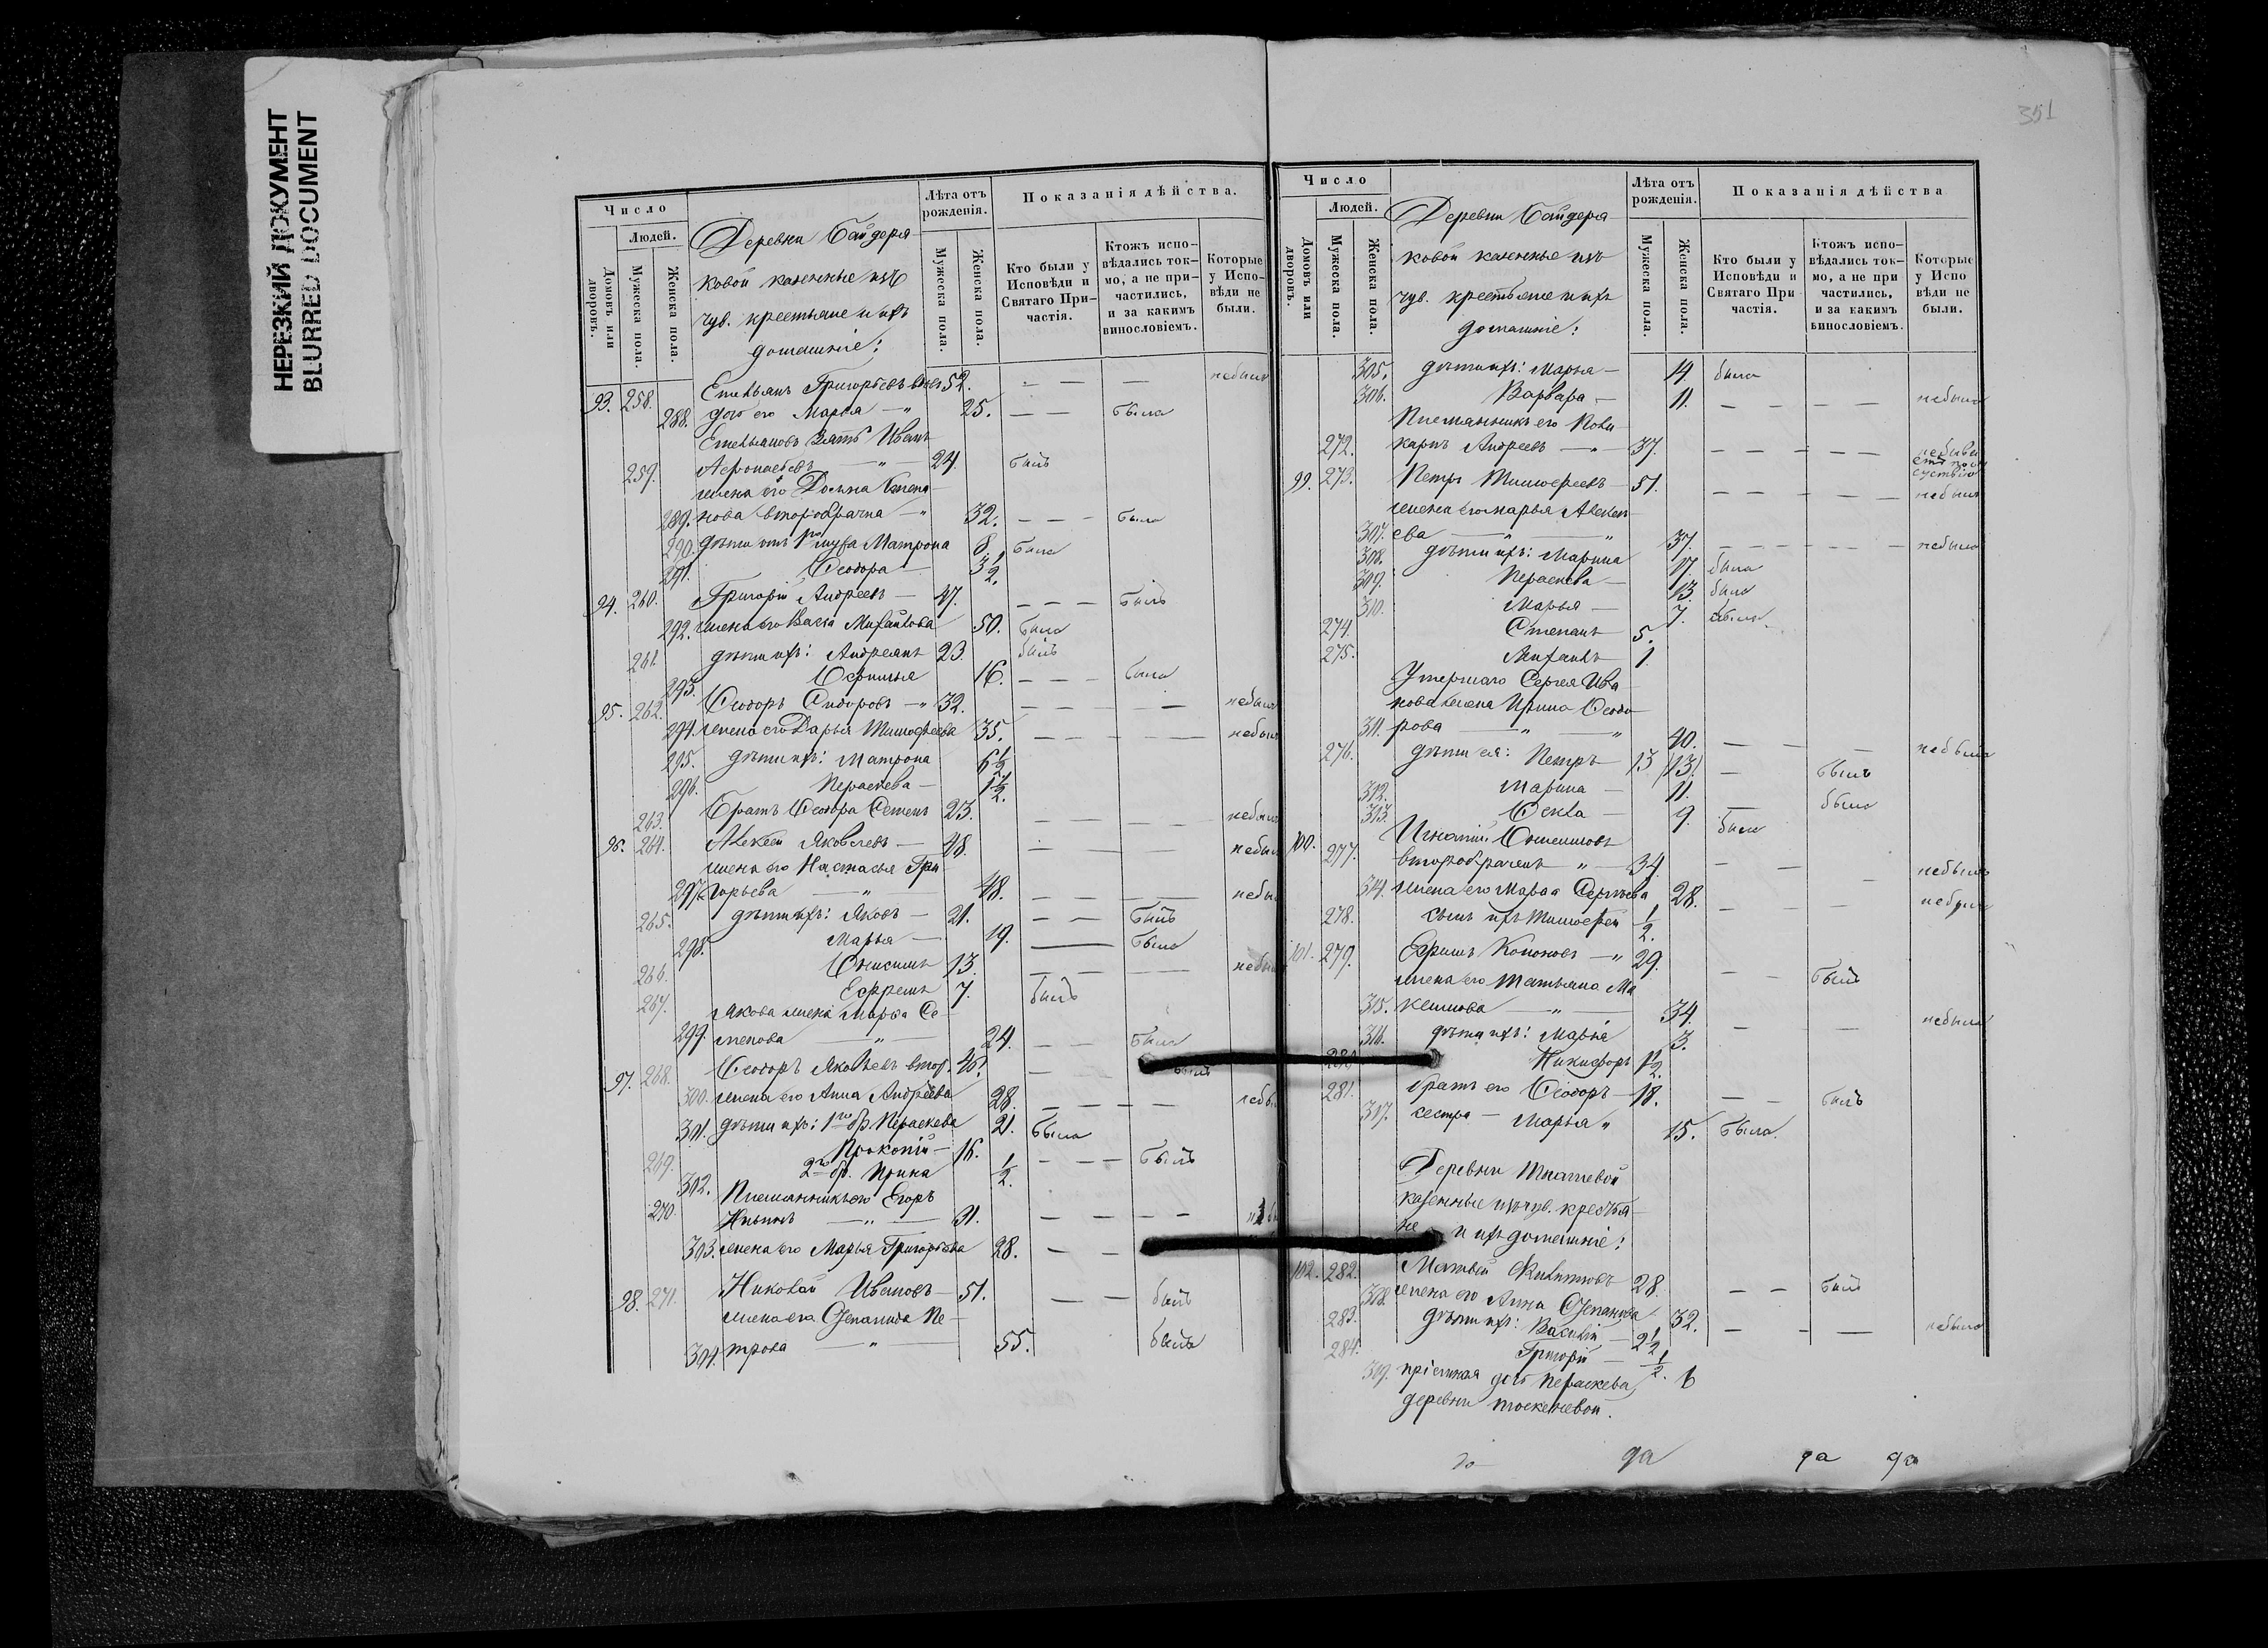 НЕРЕЗКИЙ ДОКУМЕНТ
BLURRED DOCUMENT
351
Число
Людей.
Домовъ или дворовъ.
Мужеска пола.
Женска пола.
Деревни Байдеря-
ковой казенные изъ
чув. крестьяне и ихъ
домашніе:
Лѣта отъ рожденія.
Мужеска пола.
Женска пола.
Показанія дѣйства.
Кто были у Исповѣди и Святаго При-частія.
Ктожъ испо-вѣдались ток-мо, а не при-частились, и за какимъ винословіемъ.
Которые у Испо-вѣди не были.
93. 258. Емельянъ Григорьевъ 52. — — — небылъ
288. дочь его Марья — „ 25. — — была
Емельяновъ зять Иванъ
259. — „ — 24. былъ
жена его
289. нова второбрачна — „ 32. — — — была
290. дѣти отъ 1го мужа Матрона 8. была
291. Ѳеодора — 3 1/2.
94. 260. Григорій Андреевъ — 47. — — — былъ
292. жена его Васса Михайлова 50. была
261. дѣти ихъ: Андреянъ 23. былъ
293. 16. — — — была
95. 262. Ѳеодоръ Сидоровъ — „ 32. — — — — небылъ
294. жена его Дарья Тимофеева 35. — — — — небыла
295. дѣти ихъ: Матрона 6 1/2
296. Пераскева — 1 1/2.
263. Братъ Ѳеодора Семенъ 23. — — — — небылъ
96. 264. Алексѣй Яковлевъ — 48. — — — небылъ
жена его Настасья Гри-
297. горьева — „ — 48. — — — — небы
265. дѣти ихъ: Яковъ — 21. — — былъ
298. Марья — 19. — была
266. Онисимъ 13. — — — небы
267. Ефремъ 7. былъ
Якова жена Марья Се-
299. менова — „ — 24. — — была
97. 268. Ѳеодоръ Яковлевъ втор. 46. — былъ
300. жена его Анна Андреева 28. — — — — небы
301. дѣти ихъ: 1го бр. Пераскева 21. была
269. Прокопій — 16. — — — былъ
302. 2го бр. Ирина 1/2
Племянникъ его Егоръ
270. — „ — 31. — — — —
303. жена его Марья Григорьева 28. — —
98. 271. Николай Ивановъ — 51. — — былъ
жена его Степанида Пе-
304. трова — „ — 55. была
Число
Людей.
Домовъ или дворовъ.
Мужеска пола.
Женска пола.
Деревни Байдеря-
ковой казенные изъ
чув. крестьяне и ихъ
домашніе:
Лѣта отъ рожденія.
Мужеска пола.
Женска пола.
Показанія дѣйства
Кто были у Исповѣди и Святаго При частія.
Ктожъ испо-вѣдались ток-мо, а не при частились, и за какимъ винословіемъ.
Которые у Испо вѣди не были.
305. дѣти ихъ: Марья — 14. была
306. Варвара — 11. — — — — небыла
Племянникъ его Поли-
272. карпъ Андреевъ — „ — 37. — — — — —
99. 273. Петръ Тимофеевъ — 51. — — — — — небылъ
жена его Марья Алексѣ-
307. ева — „ — „ 37. — — — — — небыла
308. дѣти ихъ: Марина 17 была
309. Пераскева — 13. была
310. Марья — 7. была.
274. Степанъ 5.
275. Михаилъ 1
Умершаго Сергея Ива-
нова жена Ирина Ѳеодо-
311. рова — „ — „ 40. — — — небыла
276. дѣти ея: Петръ 13 (13) — былъ
312. Марина — 11. — была
313. Ѳекла — 9. была
100. Игнатій Онисимовъ
277. второбраченъ „ 34. — — — небылъ
314. жена его Марья Сергѣева 28. — — — небыла
278. сынъ ихъ Тимофей 1/2.
101. 279. Ефимъ Кононовъ — „ 29. — — былъ
жена его Татьяна Ма-
315. ксимова — „ — 34. — — небыла
316. дѣти ихъ: Марья 3.
280. Никифоръ 1 1/2.
281. братъ его Ѳеодоръ — 18. — — былъ
317. сестра — Марья „ 15. была.
Деревни
казенные изъ чув. крестья-
не и ихъ домашніе:
102. 282. Матвѣй Филиповъ 28. — — былъ
308. жена его Анна Степанова 32. — — — небыла
283. дѣти ихъ: Василій — 2 1/2
284. Григорій — 1/2.
309. пріемная дочь Пераскева 6
деревни
да
да да